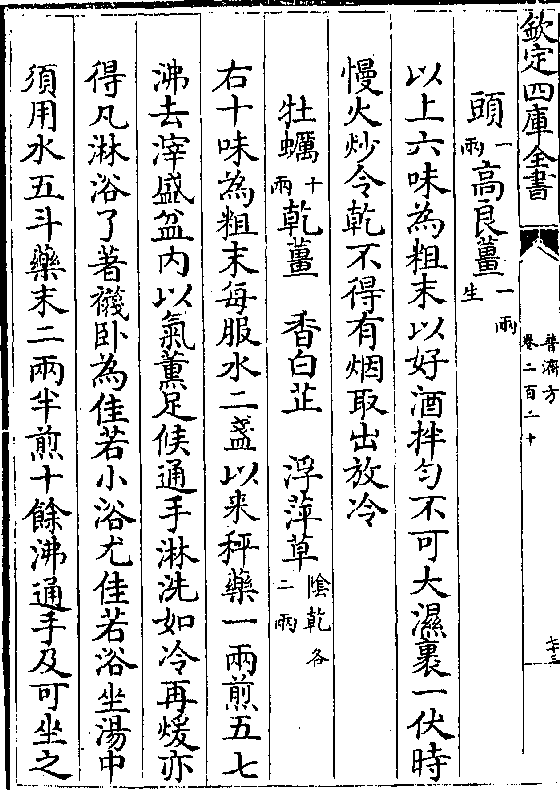 欽定四庫全書
普濟方
卷二百二十
頭一兩高良薑一兩生
以上六味為粗末以好酒拌匀不可大濕裹一伏時
慢火炒令乾不得有烟取出放冷
牡蠣十兩乾薑 香白芷 浮萍草陰乾各二兩
右十味為粗末每服水二盞以来秤藥一兩煎五七
沸去滓盛盆内以氣薰足候通手淋洗如冷再煖亦
得凡淋浴了著襪卧為佳若小浴尤佳若浴坐湯中
須用水五斗藥末二兩半煎十餘沸通手及可坐之